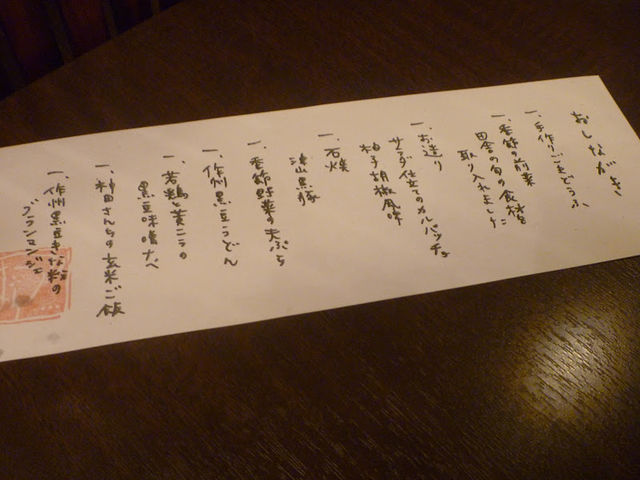 おしながき
一、手作りごまどうふ
一、季節の前菜
田舎の旬の食材を
取り入れました
一、お造り
サラダ仕立てのカルパッチョ
柚子胡椒風味
一、石焼
津山黒豚
一、季節野菜の天ぷら
一、作州黒豆うどん
一、若鶏と黄ニラの
黒豆味噌なべ
一、神田さんちの玄米ご飯
一、作州黒豆きな粉の
ブランマンジェ